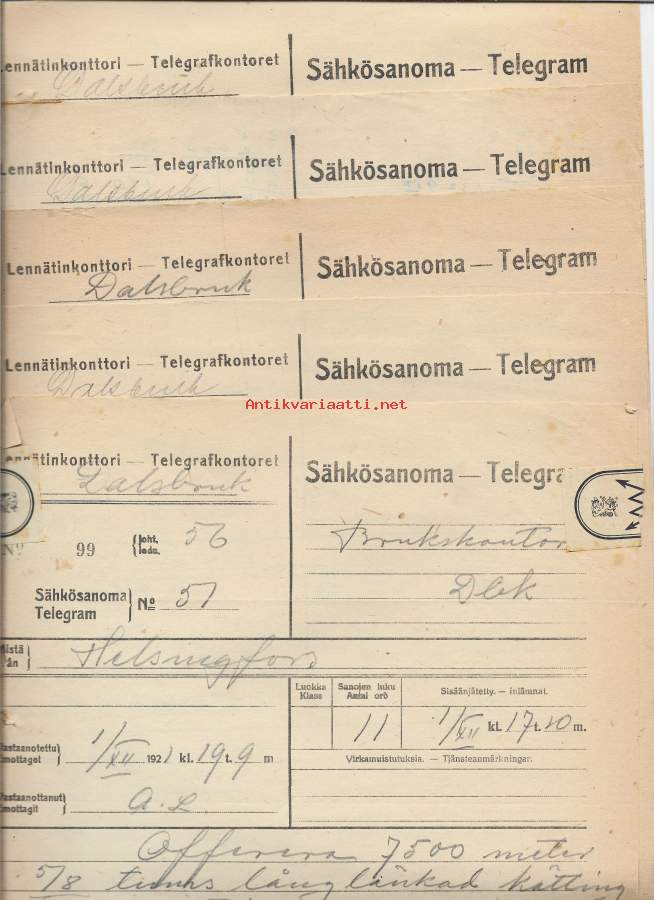 Lennätinkonttori — Telegrafkontoret
Sähkösanoma — Telegram
Dalsbruk
Lennätinkonttori — Telegrafkontoret
Sähkösanoma — Telegram
Dalsbruk
Lennätinkonttori — Telegrafkontoret
Sähkösanoma — Telegram
Dalsbruk
Lennätinkonttori — Telegrafkontoret
Sähkösanoma — Telegram
Dalsbruk
Antikvariaatti.net
nnätinkonttori — Telegrafkontoret
Sähkösanoma — Telegra
Dalsbruk
Brukskontor
Dbk
Nº 99 Joht. ledn. 56
Sähkösanoma Telegram Nº 51
istä ån Helsingfors
Luokka Klass
Sanojen luku Antal ord
Sisäänjätetty. — Inlämnat.
11
1/XII kl. 17 t. 20 m.
astaanotettu mottaget 1/XII 1921 kl. 19 t. 9 m
Virkamuistutuksia. — Tjänsteanmärkningar.
astaanottanut mottagit a. L.
Offerera 7500 meter
5/8 tums långlänkad kätting